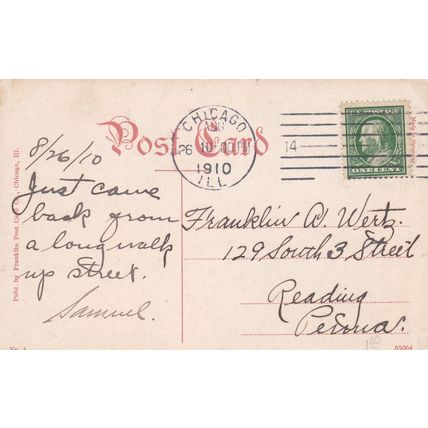 Post Card
CHICAGO
AUG
26
1910
ILL
14
ONE CENT
8/26/10
Just came
back from
a long walk
up street.
Samuel.
Franklin A. Wertz.
129 South 3 Street
Reading
Penna.
Publ. by Franklin Post Card Co., Chicago, Ill.
No. 4
65064
1.00